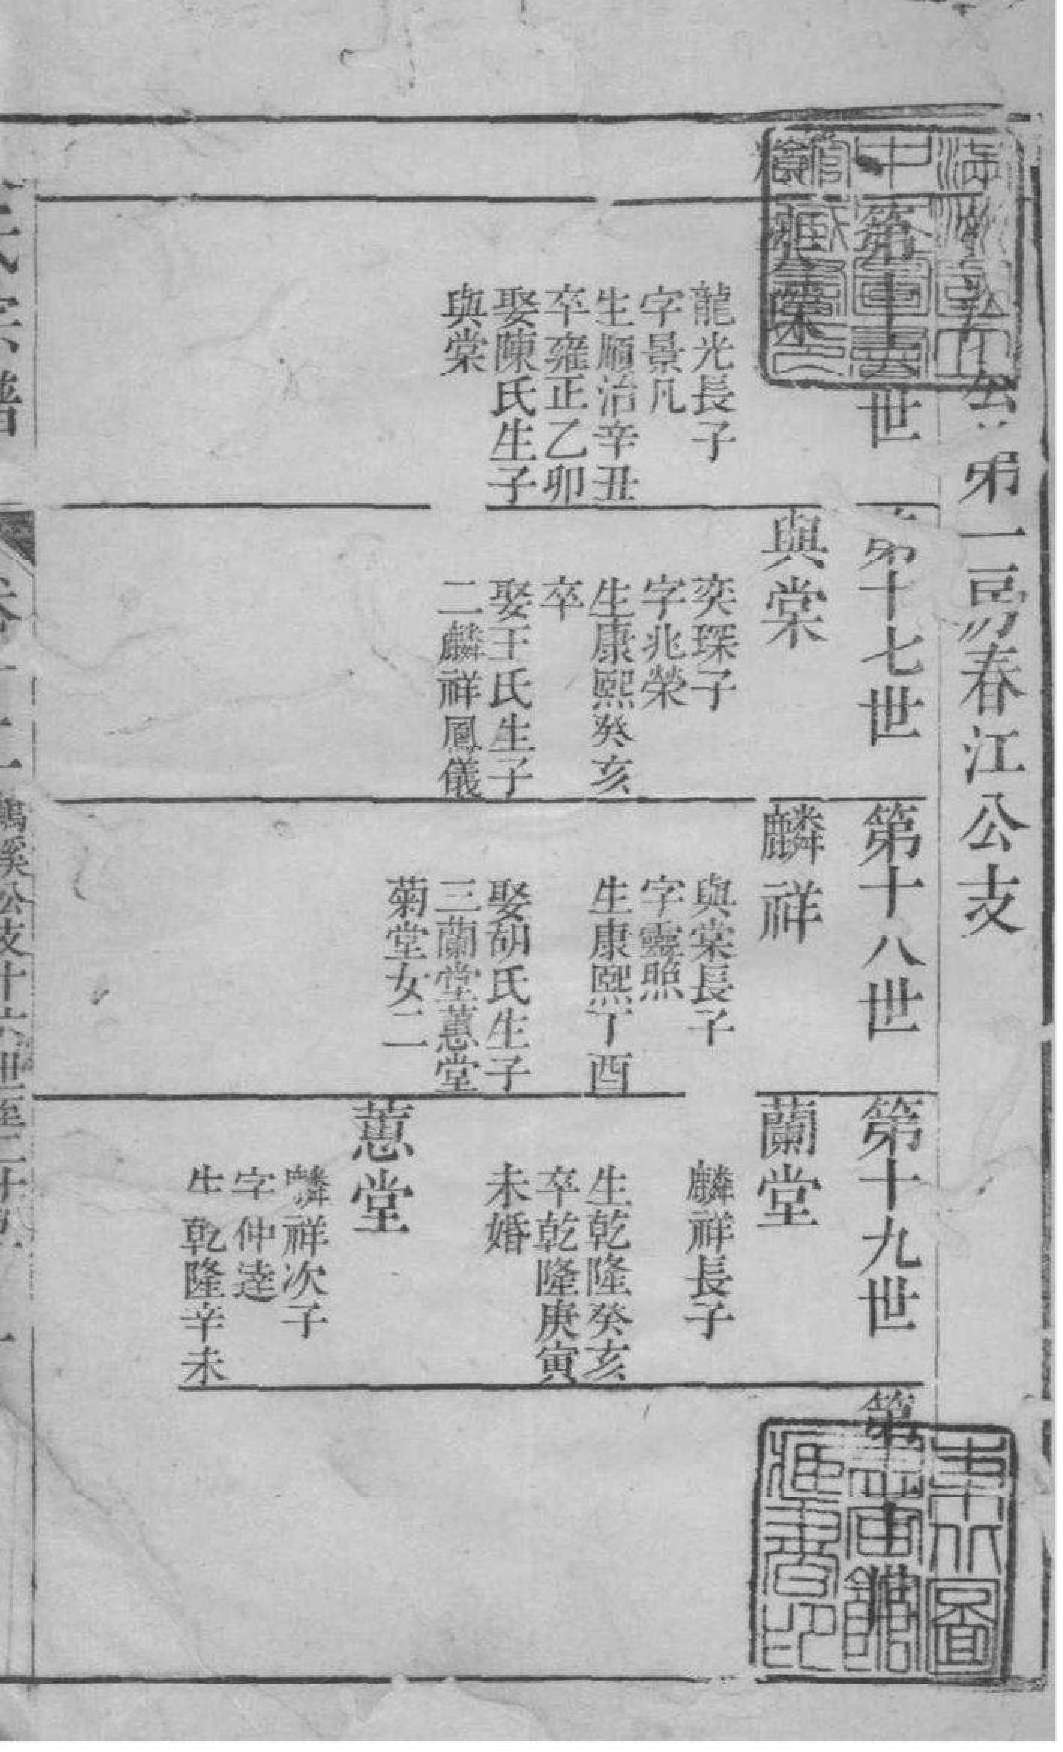 公第一房春江公支
第十六世
奕琛
龍光長子
字景凡
生順治辛丑
卒雍正乙卯
娶陳氏生子
與棠
第十七世
與棠
奕琛子
字兆榮
生康熙癸亥
卒
娶王氏生子
二麟祥鳳儀
第十八世
麟祥
與棠長子
字靈照
生康熙丁酉
娶胡氏生子
三蘭堂蕙堂
菊堂女二
第十九世
蘭堂
麟祥長子
生乾隆癸亥
卒乾隆庚寅
未婚
蕙堂
麟祥次子
字仲逵
生乾隆辛未
第二十世
氏宗譜
鶴溪公支十六世至二十